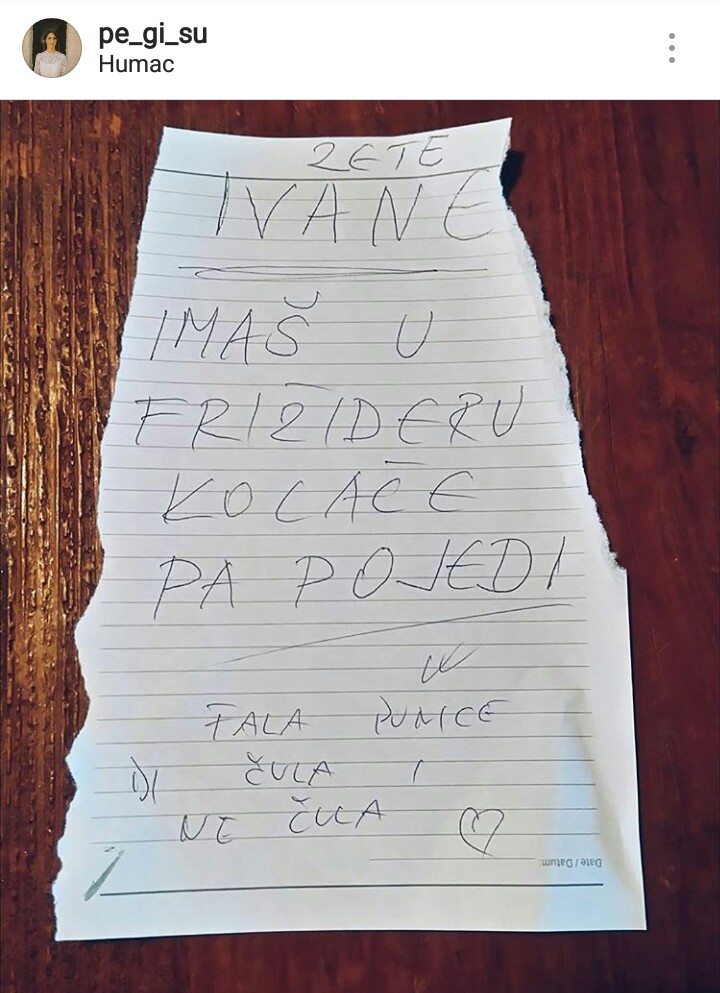 pe_gi_su
Humac
ZETE
IVANE
IMAŠ U
FRIŽIDERU
KOLAČE
PA POJEDI
FALA PUNICE
DI ČULA I
NE ČULA
Date / Datum: